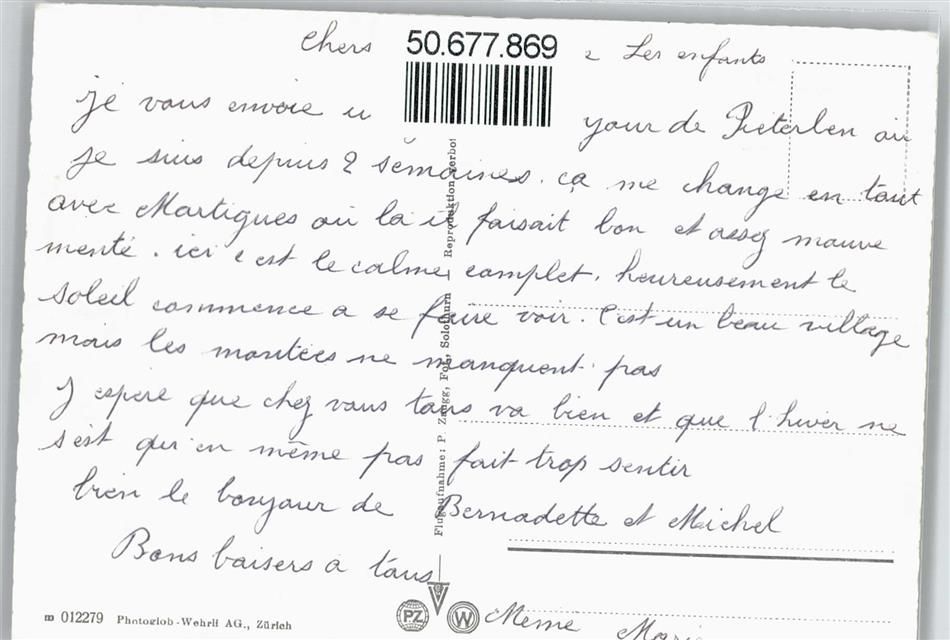 Chers
50.677.869
Les enfants
je vous envoie u
jour de Pieterlen ou
je suis depuis 2 semaines. ça me change en tout
avec Martigues ou la il faisait bon et assez mouve
menté. ici c'est le calme complet. heureusement le
soleil commence a se faire voir. C'est un beau village
mais les montées ne manquent pas
J'espère que chez vous tous va bien et que l'hiver ne
s'est qu'en même pas fait trop sentir
bien le bonjour de Bernadette et Michel
Bons baisers a tous
Meme
Flugaufnahme: P. Zaugg, Fot. Solothurn Reproduktion verbot
012279 Photoglob-Wehrli AG., Zürich
PZ
W